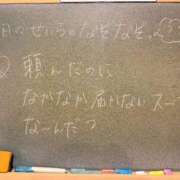 月のせいろのなぞなぞ。
頼んだのに
なかなか届かないスープ
な〜んだ?